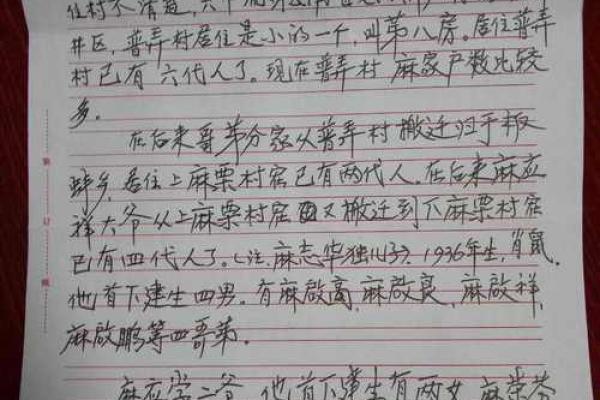 住村不清楚,六个
井区,普弄村居住是小的一个,叫第八房。居住普弄
村已有六代人了。现在普弄村麻家户数比较
多。
在后来哥弟分家从普弄村搬迁归于板
蚌乡,居住上麻栗村宿已有两代人。在后来麻应
祥大爷从上麻栗村宿又搬迁到下麻栗村宿
已有四代人了。(注:麻志华独儿子,1936年生,肖鼠.
他首下建生四男。有麻啟高,麻啟良,麻啟祥,
麻啟鹏等四哥弟。
麻应学二爷,他首下建生有两女,麻荣芬
装
订
线